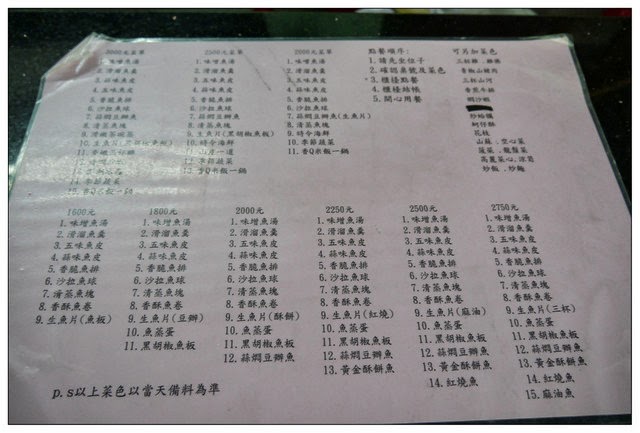 3000元菜單
1.味噌魚湯
2.滑溜魚羹
3.蒜味魚皮
4.五味魚皮
5.香脆魚排
6.沙拉魚球
7.蒜燜豆瓣魚
8.清蒸魚塊
10.生魚片(黑胡椒魚板)
14.季節蔬菜
15.香Q米飯一鍋
2500元菜單
1.味噌魚湯
2.滑溜魚羹
3.蒜味魚皮
4.五味魚皮
5.香脆魚排
6.沙拉魚球
7.蒜燜豆瓣魚
8.清蒸魚塊
9.生魚片(黑胡椒魚板)
10.時令海鮮
11.山產一道
12.季節蔬菜
13.香Q米飯一鍋
2000元菜單
1.味噌魚湯
2.滑溜魚羹
3.蒜味魚皮
4.五味魚皮
5.香脆魚排
6.沙拉魚球
7.蒜燜豆瓣魚(生魚片)
8.清蒸魚塊
9.時令海鮮
10.季節蔬菜
11.香Q米飯一鍋
點餐順序:
1.請先坐位子
2.確認桌號及菜色
3.櫃檯點餐
4.櫃檯結帳
5.開心用餐
可另加菜色
三杯雞.雞湯
三杯山河
香蔥牛柳
炒蛤蠣
蚵仔酥
花枝
山蘇.空心菜
菠菜.龍鬚菜
高麗菜心.涼筍
炒飯.炒麵
1600元
1.味增魚湯
2.滑溜魚羹
3.五味魚皮
4.蒜味魚皮
5.香脆魚排
6.沙拉魚球
7.清蒸魚塊
8.香酥魚卷
9.生魚片(魚板)
1800元
1.味增魚湯
2.滑溜魚羹
3.五味魚皮
4.蒜味魚皮
5.香脆魚排
6.沙拉魚球
7.清蒸魚塊
8.香酥魚卷
9.生魚片(豆瓣)
10.魚蒸蛋
11.黑胡椒魚板
2000元
1.味增魚湯
2.滑溜魚羹
3.五味魚皮
4.蒜味魚皮
5.香脆魚排
6.沙拉魚球
7.清蒸魚塊
8.香酥魚卷
9.生魚片(酥餅)
10.魚蒸蛋
11.黑胡椒魚板
12.蒜燜豆瓣魚
2250元
1.味增魚湯
2.滑溜魚羹
3.五味魚皮
4.蒜味魚皮
5.香脆魚排
6.沙拉魚球
7.清蒸魚塊
8.香酥魚卷
9.生魚片(紅燒)
10.魚蒸蛋
11.黑胡椒魚板
12.蒜燜豆瓣魚
13.黃金酥餅魚
2500元
1.味增魚湯
2.滑溜魚羹
3.五味魚皮
4.蒜味魚皮
5.香脆魚排
6.沙拉魚球
7.清蒸魚塊
8.香酥魚卷
9.生魚片(麻油)
10.魚蒸蛋
11.黑胡椒魚板
12.蒜燜豆瓣魚
13.黃金酥餅魚
14.紅燒魚
2750元
1.味增魚湯
2.滑溜魚羹
3.五味魚皮
4.蒜味魚皮
5.香脆魚排
6.沙拉魚球
7.清蒸魚塊
8.香酥魚卷
9.生魚片(三杯)
10.魚蒸蛋
11.黑胡椒魚板
12.蒜燜豆瓣魚
13.黃金酥餅魚
14.紅燒魚
15.麻油魚
p.s以上菜色以當天備料為準